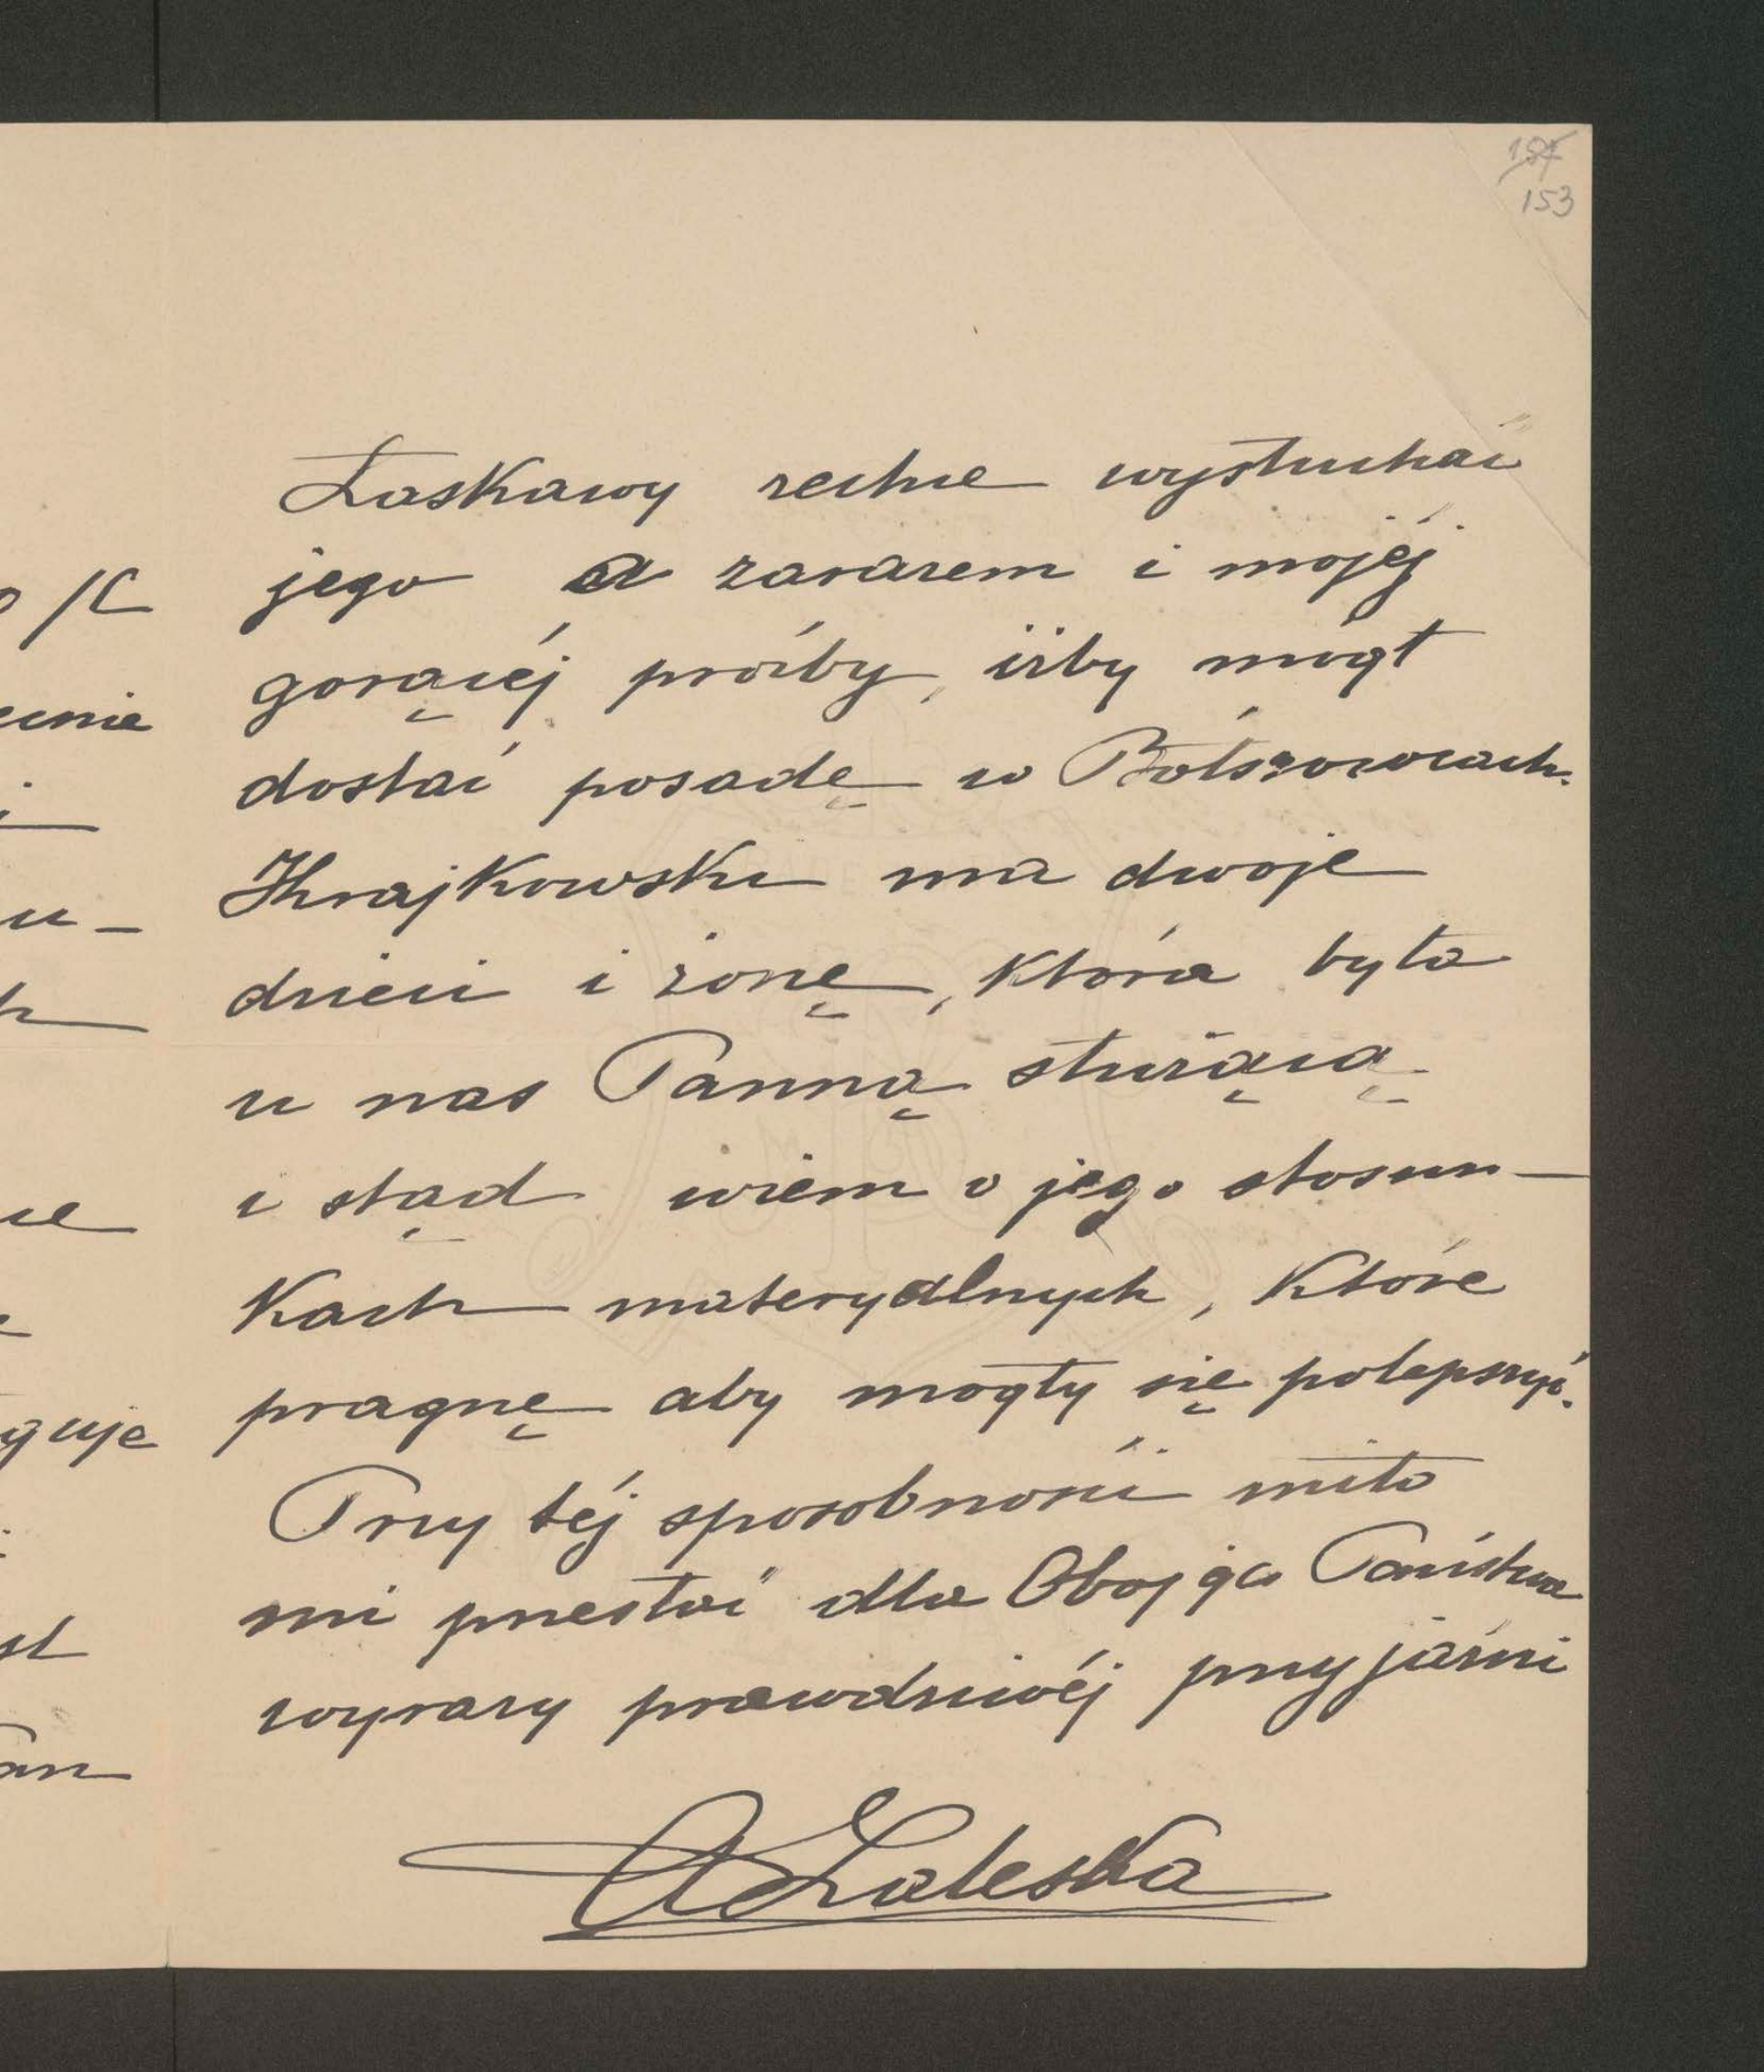 187
153
Łaskawy zechce wysłuchać
jego a zarazem i mojéj
gorącéj prośby, iżby mógł
dostać posadę w Bołszowcach.
Krajkowski ma dwoje
dzieci i żonę, która była
u nas Panną służącą
i stąd wiem o jego stosun-
kach materyalnych, które
pragnę aby mogły się polepszyć.
Przy téj sposobności miło
mi przesłać dla Obojga Państwa
wyrazy prawdziwéj przyjaźni
AZaleska
o K
i
u-
guje